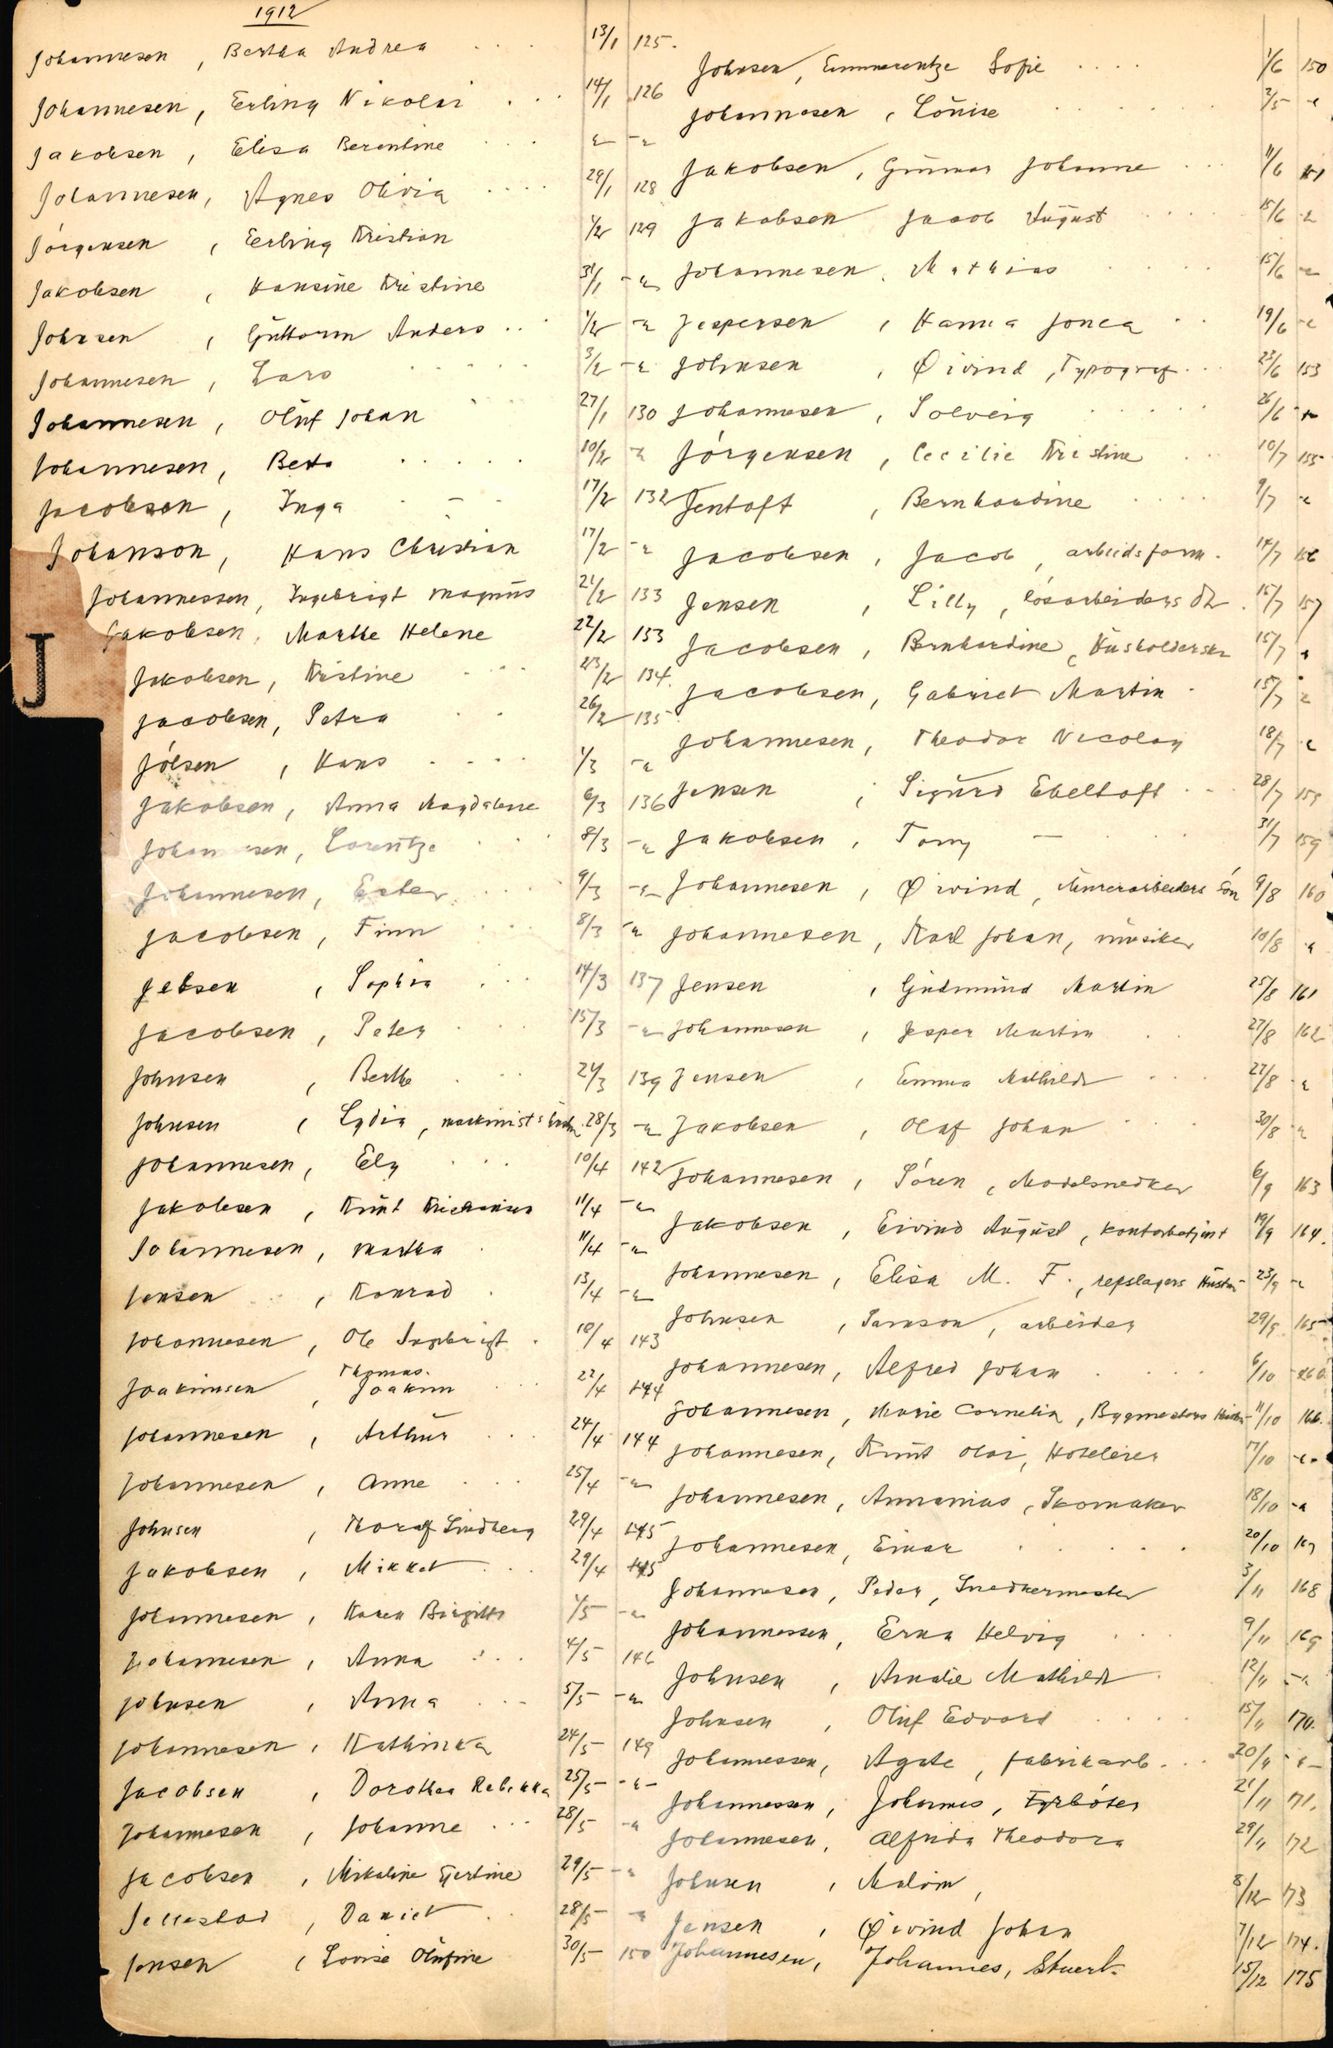 1912
Johannesen, Bertha Andrea 13/1 125.
Johannesen, Erling Nikolai 14/1 126
Jakobsen, Elisa Berentine
Johannesen, Agnes Olivia 29/1 128
Jörgensen, Erling Kristian 1/2 129
Jakobsen, Hansine Kristine 31/1
Johnsen, Guttorm Anders 1/2
Johannesen, Lars 3/2
Johannesen, Oluf Johan 27/1 130
Johannesen, Berta 10/2
Jacobsen, Inga 17/2 132
Johanson, Hans Christian 17/2
Johannessen, Ingebrigt Magnus 21/2 133
Jakobsen, Marthe Helene 22/2 133
Jakobsen, Kristine 23/2 134.
Jacobsen, Petra 26/2 135
Jölsen, Hans 1/3
Jakobsen, Anna Magdalene 6/3 136
Johannesen, Lorentze 8/3
Johannesen, Ester 9/3
Jacobsen, Finn 8/3
Jebsen, Sophia 14/3 137
Jacobsen, Peter 15/3
Johnsen, Berthe 24/3 139
Johnsen, Lydia, maskinists 28/3
Johannesen, Ely 10/4 142
Jakobsen, Knut 11/4
Johannesen, Martha 11/4
Jensen, Konrad 13/4
Johannesen, Ole Ingebrigt 18/4 143
Thomas.
Joakimsen, Joakim 22/4 144
Johannesen, Arthur 24/4 144
Johannesen, Anne 25/4
Johnsen, Thoralf Lindberg 29/4 145
Jakobsen, Mikkel 29/4 145
Johannesen, Karen Birgitte 1/5
Johannesen, Anna 4/5 146
Johnsen, Anna 5/5
Johannesen, Kathinka 24/5 149
Jacobsen, Dorothea Rebekka 25/5
Johannesen, Johanne 28/5
Jacobsen, Mikaline Gjertine 29/5
Jellestad, Daniel 28/5
Jensen, Lovise Olufine 30/5 150
J
Johnsen, Emmerentze Sofie 1/6 150
Johannesen, Louise 2/5
Jakobsen, Gunnar Johanne 11/6 151
Jakobsen Jacob August 15/6
Johannesen, Mathias 15/6
Jespersen, Hanna Jonea 19/6
Johnsen, Øivind, Typograf 23/6 153
Johannesen, Solveig 26/6
Jörgensen, Cecilie Kristine 10/7 155
Jentoft, Bernhardine 9/7
Jacobsen, Jacob, arbeidsform. 14/7 156
Jensen, Lilly, løsarbeiders 15/7 157
Jacobsen, Bernhardine, Husholderske 15/7
Jacobsen, Gabriel Martin 15/7
Johannesen, Theodor Nicolay 18/7
Jensen, Sigurd Ebeltoft 28/7 159
Jakobsen, Tomy 31/7 159
Johannesen, Øivind, Murerarbeiders Sön 9/8 160
Johannesen, Karl Johan, musiker 10/8
Jensen, Gudmund Martin 25/8 161
Johannesen, Jesper Martin 27/8 162
Jensen, Emma Mathilde 27/8
Jakobsen, Olaf Johan 30/8
Johannesen, Sören, Modelsnedker 6/9 163
Jakobsen, Eivind August, Kontorbetjent 19/9 164.
Johannesen, Elisa M. F., repslagers Hustru 23/9
Johnsen, Samson, arbeider 29/9 165
Johannesen, Alfred Johan 6/10
Johannesen, Marie Cornelia, Bygmesters Hustru 11/10 166.
Johannesen, Knut Olai, Hoteleier 17/10
Johannesen, Annanias, Skomaker 18/10
Johannesen, Einar 20/10 167
Johannesen, Peder, Snedkermester 3/11 168
Johannessen, Erna Helvig 9/11 169
Johnsen, Amalie Mathilde 12/11
Johnsen, Oluf Edvard 15/11 170.
Johannessen, Agate, fabrikarb. 20/11
Johannessen, Johannes, Fyrböter 21/11 171.
Johannesen, Alfrida Theodora 29/11 172
Johnsen, Malom, 8/12 173
Jensen, Øivind Johan 7/12 174.
Johannesen, Johannes, Stuert. 15/12 175